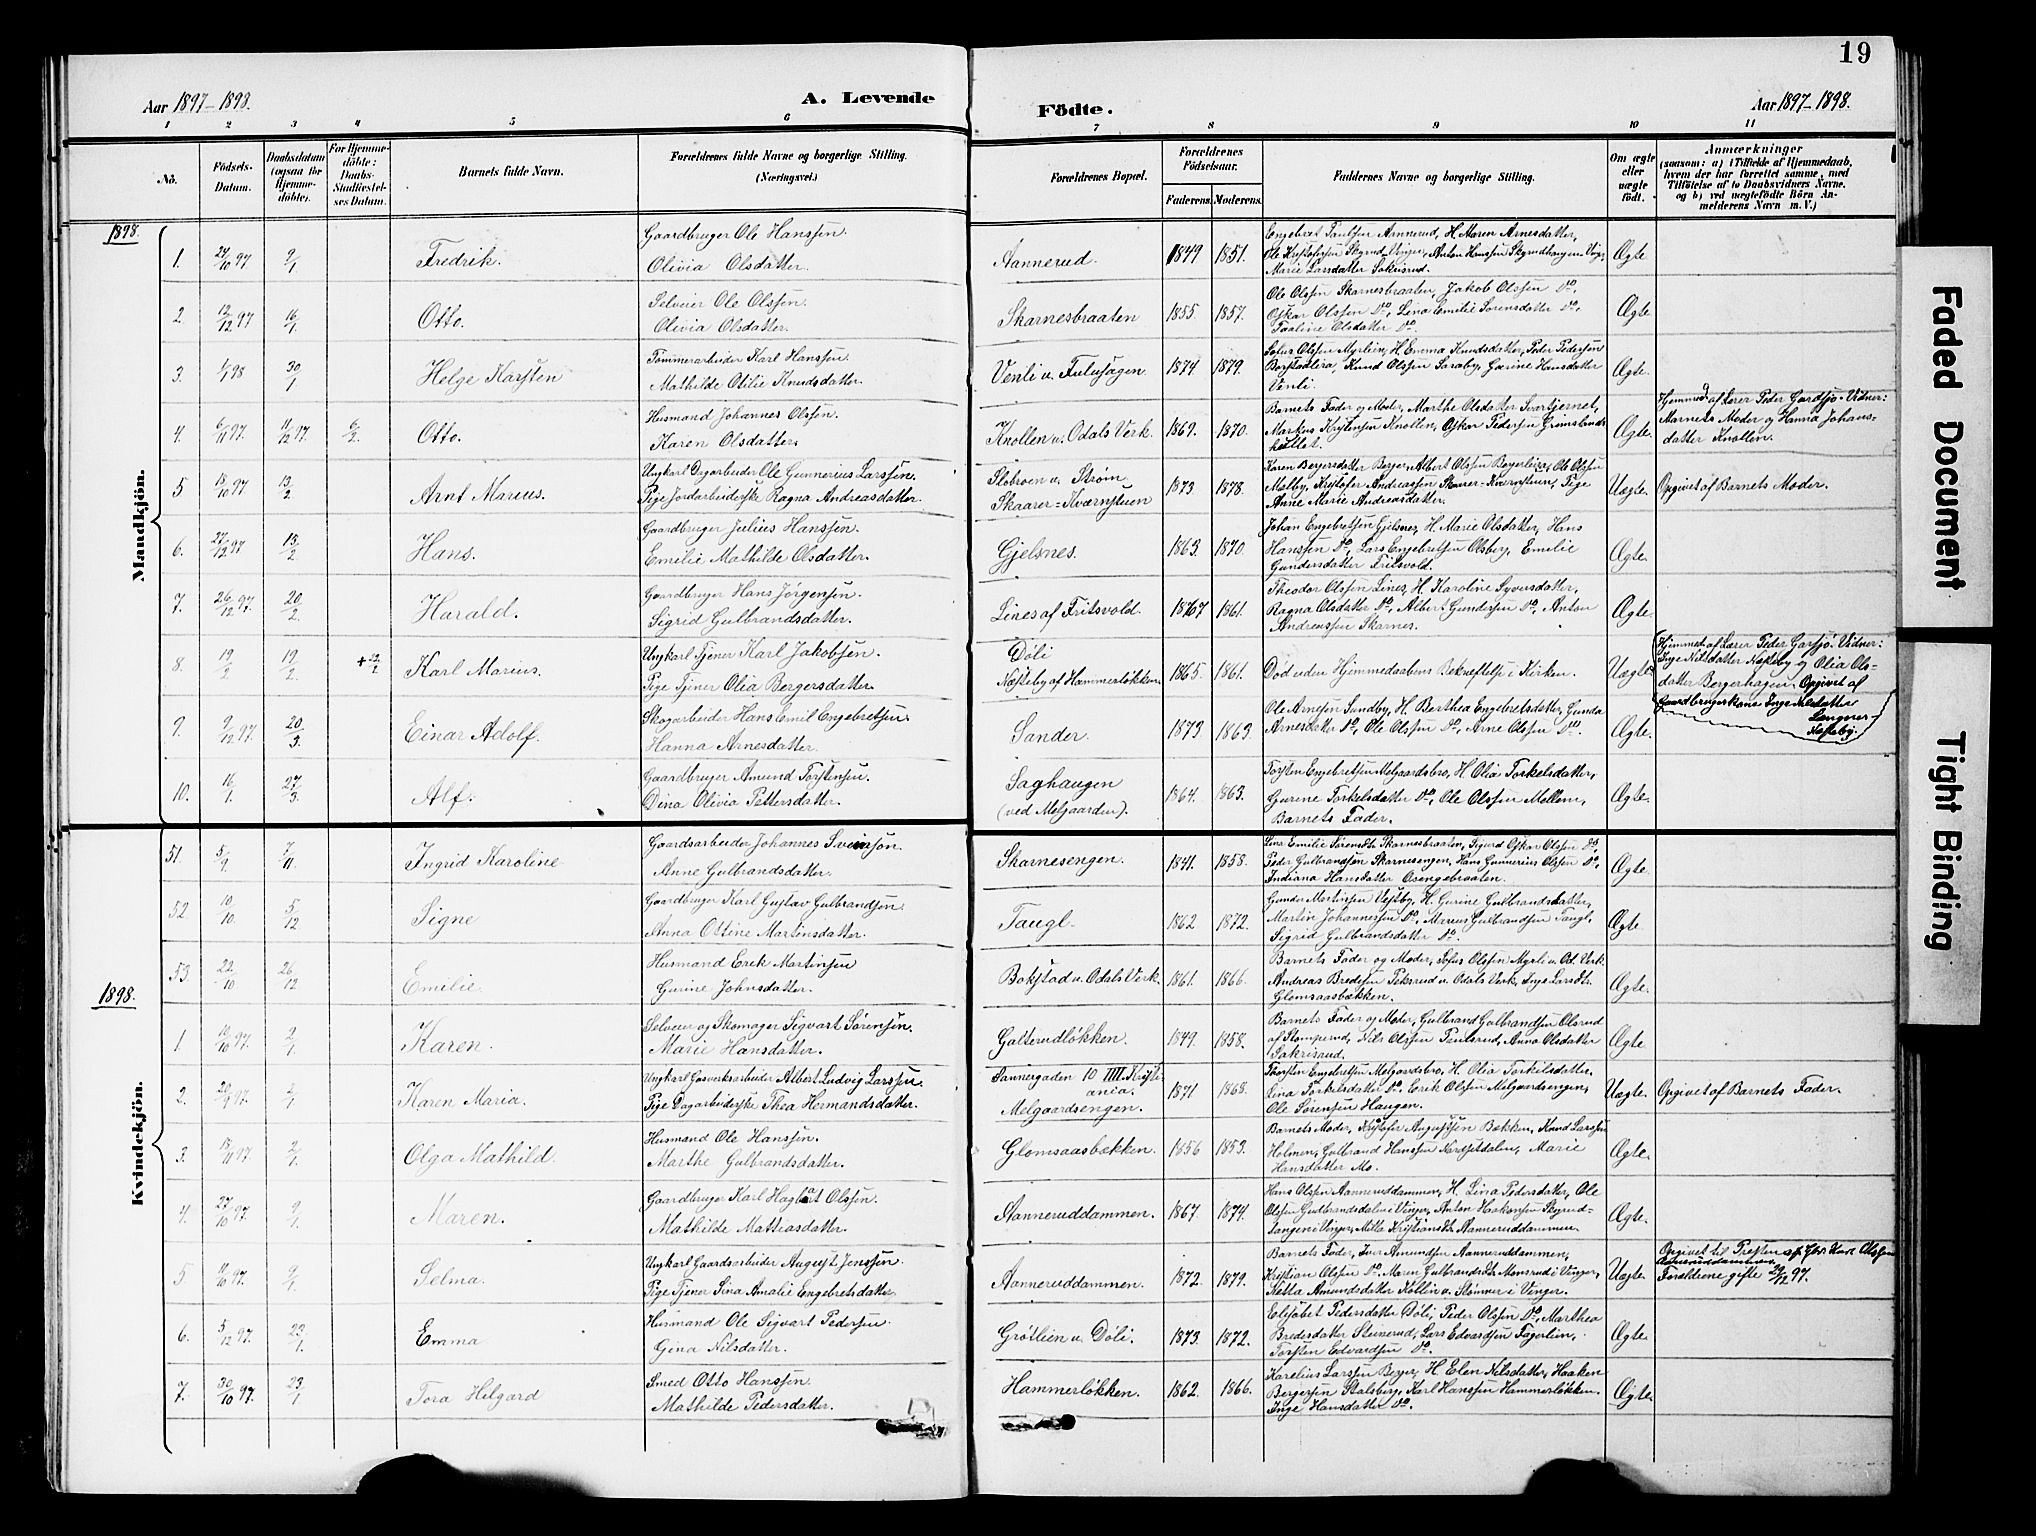 19
Aar 1897-1898.
A. Levende
Födte.
Aar 1897-1898.
1 2 3 4 5 6 7 8 9 10 11
No.
Födsels-
Datum.
Daabsdatum
(ogsaa for
Hjemme-
döbte).
For Hjemme-
döbte:
Daabs-
Stadfæstel-
ses Datum.
Barnets fulde Navn.
Forældrenes fulde Navne og borgerlige Stilling.
(Næringsvei.)
Forældrenes Bopæl.
Forældrenes
Födselsaar.
Faderens. Moderens.
Faddernes Navne og borgerlige Stilling.
Om ægte
eller
uægte
födt.
Anmærkninger
(saasom: a) i Tilfælde af Hjemmedaab,
hvem der har forrettet samme, med
Tilföielse af to Daabsvidners Navne,
og b) ved uægtefödte Börn An-
melderens Navn m. V.)
1898.
Mandkjön.
1. 24/10 97 9/1 Fredrik.
Gaardbruger Ole Hanssen.
Olivia Olsdatter.
Aannerud. 1849 1851.
Engebret Paulsen Annerud, H. Maren Arnesdatter,
Ole Kristofersen Skyrud Vinger, Anton Hanssen
Marie Larsdatter Sakrisrud.
Ægte.
2. 12/12 97 16/1 Otto.
Selveier Ole Olssen.
Olivia Olsdatter.
Skarnesbraaten 1855 1857.
Ole Olssen Skarnesbraaten, Jakob Olssen Do,
Oskar Olssen Do, Lina Emilie Sørensdatter Do,
Paaline Olsdatter Do.
Ægte
3. 1/1 98 30/1 Helge Karsten
Tømmerarbeider Karl Hanssen.
Mathilde Otilie Knudsdatter.
Venli u. Fulusagen. 1874 1879.
Sofus Olssen Myrlien, H. Emma Knudsdatter, Peder Pedersen
Borstadlera, Knud Olssen Saraby, Gurine Hansdatter
Venli.
Ægte.
4. 6/11 97. 11/12 97. 6/2. Otto.
Husmand Johannes Olssen.
Karen Olsdatter.
Knollen u. Odals Verk. 1869. 1870.
Barnets Fader og Moder, Marthe Olsdatter Svartjernet,
Markus Kristensen Knollen, Oskar Pedersen
Ægte.
Hjemmed. af Lærer Peder Gardsjø. Vidner:
Barnets Moder og Hanna Johans-
datter Knollen.
5 18/10 97 13/2 Arnt Marius.
Ungkarl Dagarbeider Ole Gunnerius Larssen.
Pige Jordarbeiderske Ragna Andreasdatter.
Slobroen u. Strøm
Skaarer-Kværnstuen 1873 1878.
Karen Bergersdatter Berger, Albert Olssen Bergerlera, Ole Olssen
Melby, Kristofer Andreassen Skaarer-Kværnstuen, Pige
Anne Marie Andreasdatter.
Uægte. Opgivet af Barnets Moder.
6. 27/12 97 13/2 Hans.
Gaardbruger Julius Hanssen.
Emilie Mathilde Olsdatter.
Gjelsnes. 1863. 1870.
Johan Engebretsen Gjelsnes, H. Marie Olsdatter, Hans
Hanssen Do, Lars Engebretsen Olsberg, Emilie
Gundersdatter Fritsvold.
Ægte.
7. 26/12 97. 20/2 Harald.
Gaardbruger Hans Jørgensen.
Sigrid Gulbrandsdatter.
Lines af Fritsvold. 1867 1861.
Theodor Olssen Lines, H. Karoline Syversdatter,
Ragna Olsdatter Do, Albert Gundersen Do, Anton
Andreassen Skarnes.
Ægte
8. 19/2 19/2. Karl Marius.
Ungkarl Tjener Karl Jakobsen.
Pige Tjener Olia Bergersdatter.
Døli
Næsteby af Hammerløkken. 1865. 1861.
Død uden Hjemmedaabens Bekræftelse i Kirken.
Uægte.
Hjemmet af Lærer Peder Garsjø. Vidner:
Inge Nilsdatter Næsteby og Olia Ols-
datter Bergerhagen, Opgivet af
Gaardbrugerkone Inge Nilsdatter
Næsteby.
9. 9/12 97. 20/3 Einar Adolf.
Skogarbeider Hans Emil Engebretsen.
Hanna Arnesdatter.
Sander. 1873 1863.
Ole Arnesen Sundby, H. Berthea Engebretsdatter, Gunda
Arnesdatter Do, Ole Olssen Do, Arne Olssen Do.
Ægte.
10. 16/1. 27/3. Alf.
Gaardbruger Amund Torstensen.
Dina Olivia Pettersdatter.
Saghaugen
(ved Melgaarden). 1864. 1863.
Torsten Engebretsen Melgaardsbro, H. Olia Torkelsdatter,
Gurine Torkelsdatter Do, Ole Olssen Mollem,
Barnets Fader.
Ægte.
51. 5/9. 7/11. Ingrid Karoline
Gaardsarbeider Johannes Sveinsson.
Anne Gulbrandsdatter.
Skarnesengen. 1841. 1858.
Lina Emilie Sørensdt. Skarnesbraaten, Sigurd Oskar Olssen Do,
Peder Gulbrandsen Skarnesengen, Hans Gunnerius Olssen Do,
Indiana Hansdatter Osengebraaten.
Ægte.
52. 10/10. 5/12 Signe
Gaardbruger Karl Gustav Gulbrandsen.
Anna Ottine Martinsdatter.
Taugl. 1862 1872.
Gunder Martinsen Vestby, H. Gurine Gulbrandsdatter,
Martin Johannessen Do, Marius Gulbrandsen Taugl,
Sigrid Gulbrandsdatter Do.
Ægte.
53. 22/10 26/12 Emilie.
Husmand Erik Martinsen
Gurine Johnsdatter.
Bokstad u. Odals Verk. 1861. 1866.
Barnets Fader og Moder, Sofus Olssen Myrli u. Od. Verk.
Andreas Bredesen Teksrud u. Odals Verk, Inge Larsdt.
Glomsaasbækken.
Ægte.
1898.
Kvindekjön.
1 16/10 97. 2/1. Karen.
Selveier og Skomager Sigvart Sørensen.
Marie Hansdatter.
Galterudløkken. 1849. 1858.
Barnets Fader og Moder, Gulbrand Gulbrandsen Olsrud
af Stomperud, Nils Olssen Paulsrud, Anna Olsdatter
Sakrisrud.
Ægte.
2. 20/9 97. 2/1. Karen Maria.
Ungkarl Gasverksarbeider Albert Ludvig Larssen.
Pige Dagarbeiderske Thea Hermandsdatter.
Sannergaden 10 IIII. Kristi-
ania.
Melgaardsengen. 1871 1868.
Thorsten Engebretsen Melgaardsbro, H. Olia Torkilsdatter,
Lina Torkelsdatter Do. Eerik Olssen Melgaardsengen,
Ole Sørensen Haugen.
Uægte. Opgivet af Barnets Fader.
3. 18/11 97 2/1. Olga Mathild.
Husmand Ole Hanssen.
Marthe Gulbrandsdatter.
Glomsaasbækken. 1856 1853.
Barnets Moder, Kristofer Augustsen Bekken, Knud Larssen
Holmen, Gulbrand Hanssen Nordsetdalen, Marie
Hansdatter Mo.
Ægte.
4. 27/10 97. 9/1. Maren.
Gaardbruger Karl Hagbart Olssen.
Mathilde Mattiasdatter.
Aanneruddammen. 1867. 1874.
Hans Olssen Aanneruddammen, H. Lina Pedersdatter, Ole
Olssen Gulbrandsdalen i Vinger, Anton Haakensen Skyrud-
tangen i Vinger, Mitla Kristiansdt. Aanneruddammen.
Ægte.
5. 9/1. Selma.
Ungkarl Gaardsarbeider August Jenssen.
Pige Tjener Lina Amalie Engebretsdatter.
Aanneruddammen. 1872. 1879.
Barnets Fader, Iver Amundsen Aanneruddammen,
Kristian Olssen Do, Maren Gulbrandsdt. Monsrud i Vinger,
Netta Amundsdatter Kollin u. Stømner i Vinger.
Uægte.
Opgivet til Presten af Gbr. Karl Olssen
Aanneruddammen.
Forældrene gifte 29/12 97.
6. 5/12 97. 23/1. Emma
Husmand Ole Sigvart Pedersen.
Gina Nilsdatter.
Grøtlien u. Døli. 1873. 1872.
Eelisabet Pedersdatter Døli, Peder Olssen Do, Marthea
Bredesdatter Steinerud, Lars Edvardsen Fagerlien,
Torsten Edvardsen Do.
Ægte.
7. 30/10 97. 23/1 Tora Hilgard
Smed Otto Hanssen.
Mathilde Pedersdatter.
Hammerløkken. 1862. 1866.
Karelius Larssen Berger, H. Elen Nilsdatter, Haaken
Bergersen Stalsberg, Karl Hanssen Hammerløkken.
Inge Hansdatter Do.
Ægte.
Faded Document
Tight Binding